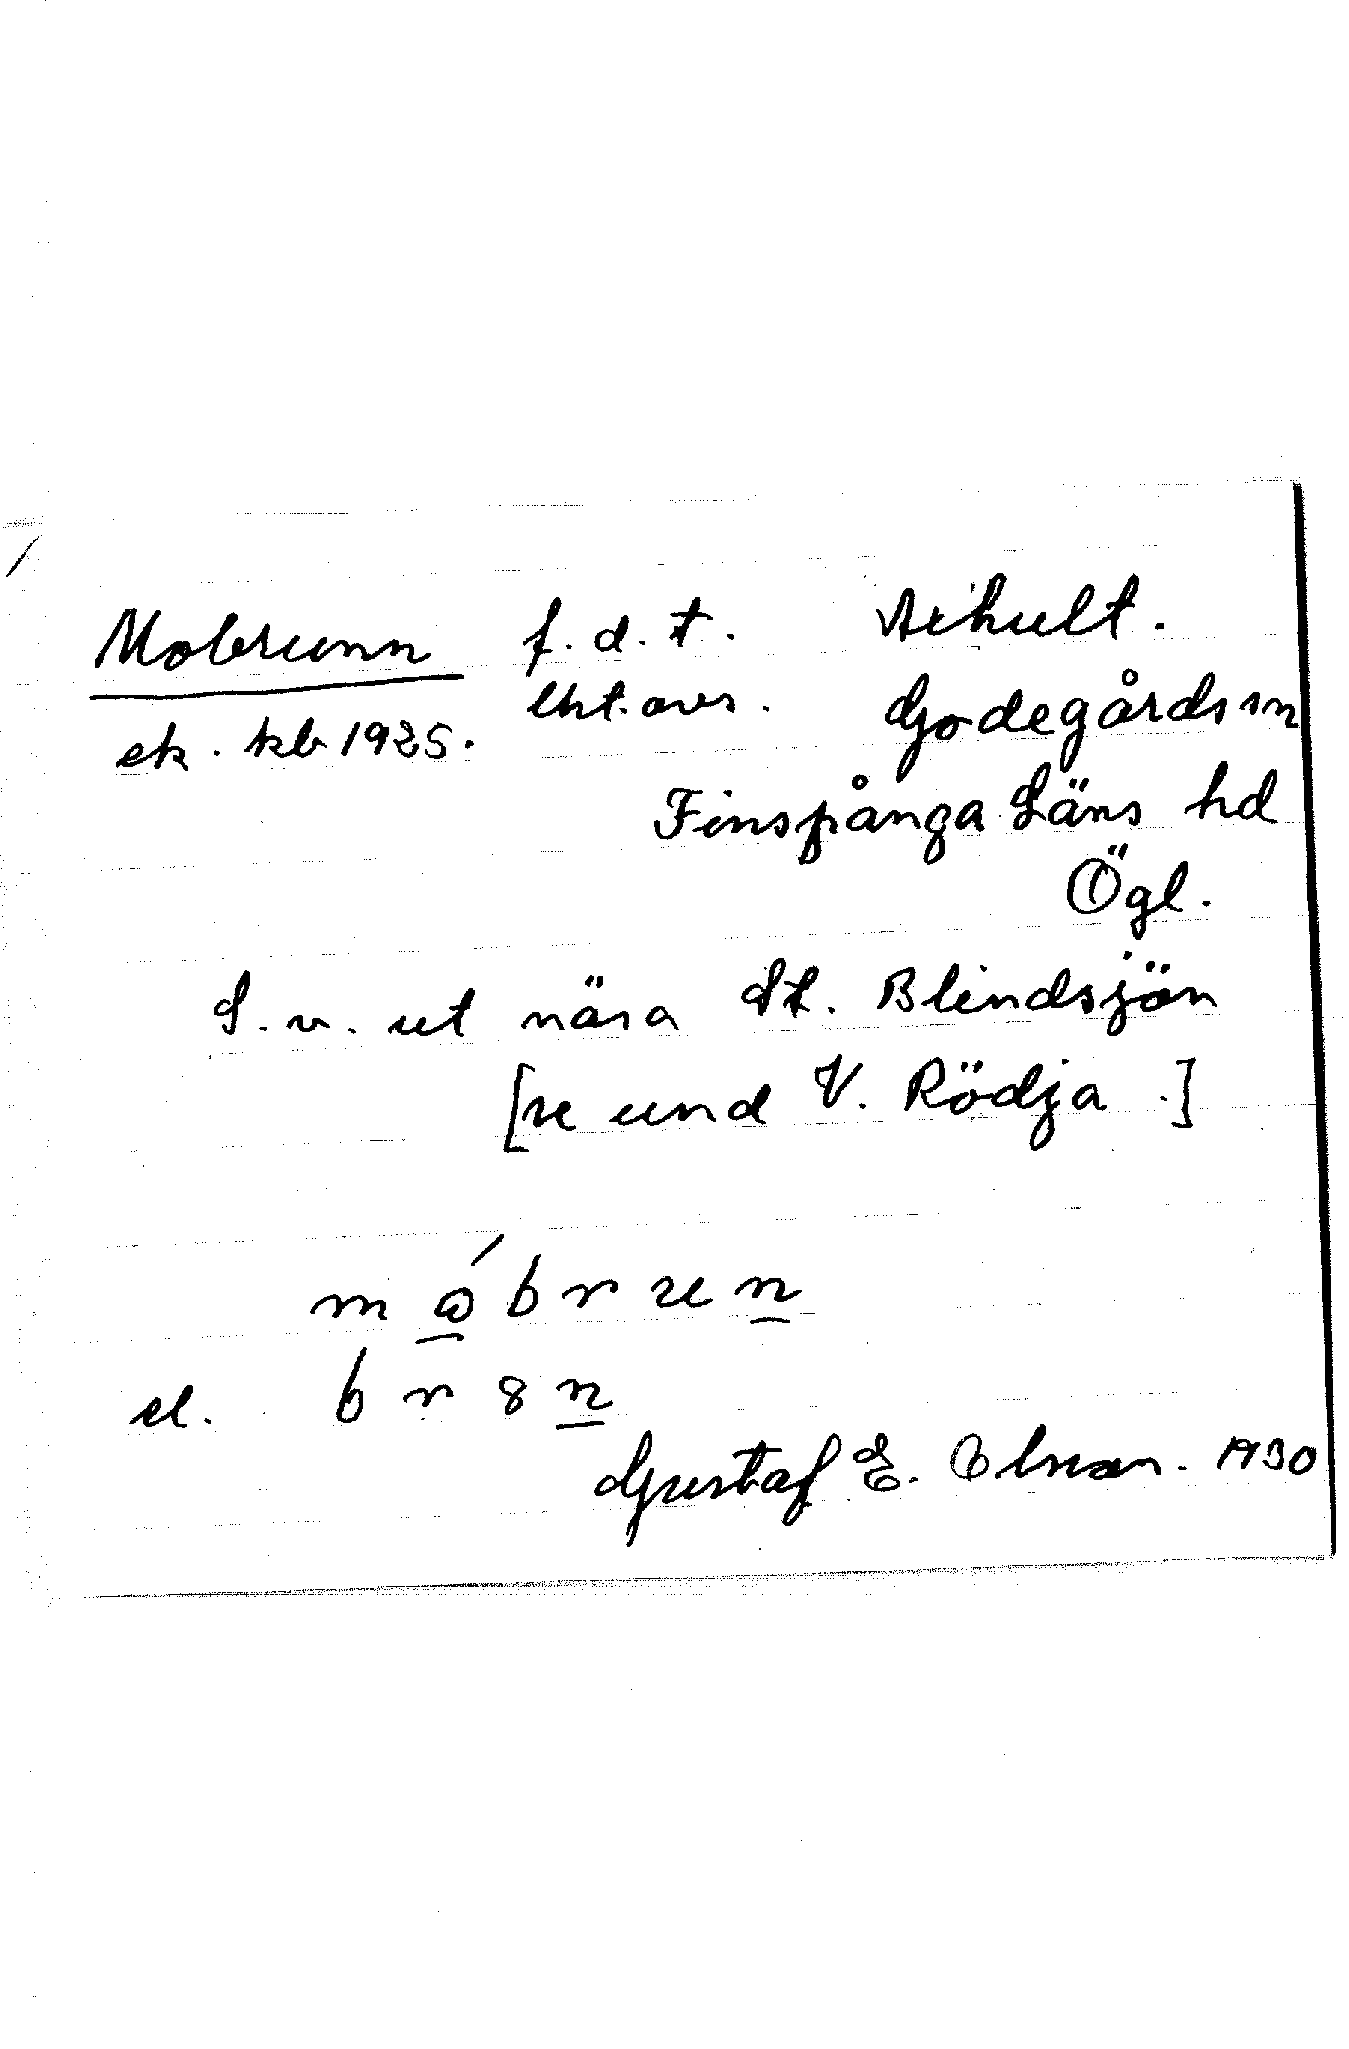 Mobrunn f.d.t. Vihult.
ek. kb 1925. Godegårds sn
Finspånga Läns hd
Ögl.
S.v. ut nära St. Blindsjön
[se und V. Rödja.]
m ó b r u n
el. b r 8 n
Gustaf E. Olson. 1930